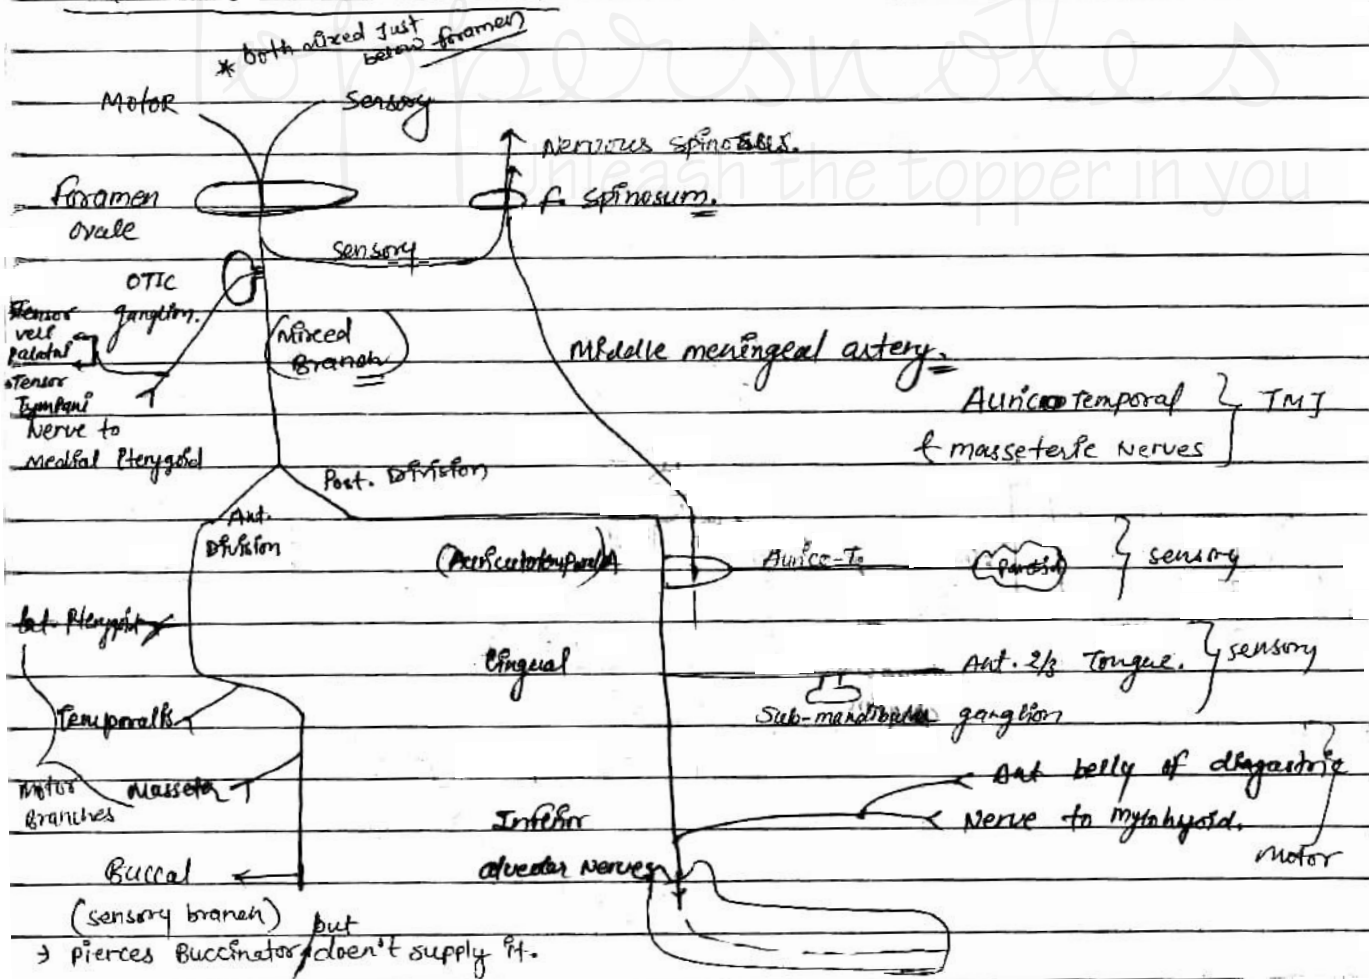 * both mixed Just
below foramen
Toppersnotes
Unleash the topper in you
Motor
Sensory
Nervous spinosus.
foramen
ovale
f. spinosum.
sensory
OTIC
ganglion.
Tensor
veli
palatai
Tensor
Tympani
Nerve to
Medial Pterygoid
(Mixed
Branch)
Middle meningeal artery.
Aurico Temporal
& masseteric Nerves
} TMJ
Post. Division
Ant.
Division
(Auriculotemporal)
Aurico-T.
Parotid
} sensory
Lat. Pterygoid
Lingual
Ant. 2/3 Tongue.
} sensory
Sub-mandibular ganglion
Temporalis
Motor
Branches
Masseter
Ant belly of diagastric
Nerve to mylohyoid.
motor
Inferior
alveolar Nerves
Buccal
(sensory branch)
→ pierces Buccinator, but
doen't supply it.